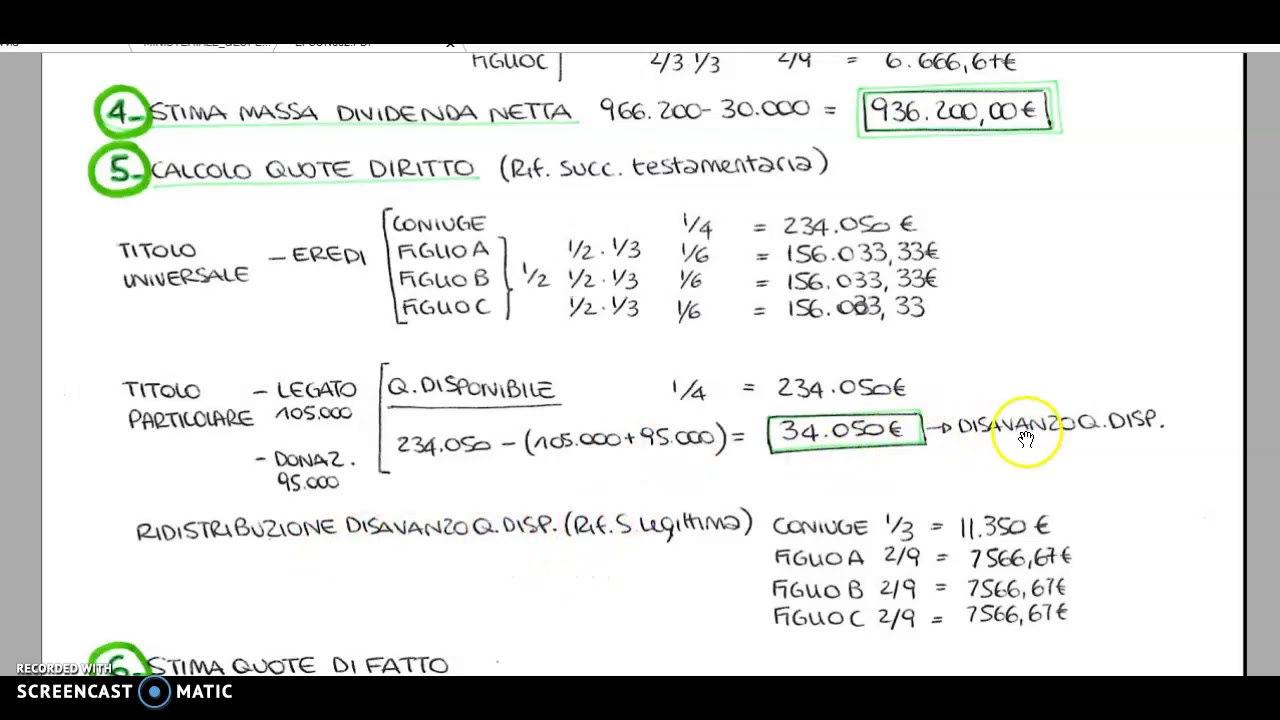 FIGLIO C 2/3 1/3 2/9 = 6.666,67€
4_ STIMA MASSA DIVIDENDA NETTA 966.200-30.000 = 936.200,00€
5_ CALCOLO QUOTE DIRITTO (Rif. succ. testamentaria)
CONIUGE 1/4 = 234.050 €
TITOLO UNIVERSALE – EREDI FIGLIO A 1/2 · 1/3 1/6 = 156.033,33€
FIGLIO B 1/2 1/2 · 1/3 1/6 = 156.033,33€
FIGLIO C 1/2 · 1/3 1/6 = 156.033,33
TITOLO PARTICOLARE – LEGATO 105.000 Q. DISPONIBILE 1/4 = 234.050€
234.050 – (105.000+95.000) = 34.050€ → DISAVANZO Q. DISP.
– DONAZ. 95.000
RIDISTRIBUZIONE DISAVANZO Q. DISP. (Rif. S legittima) CONIUGE 1/3 = 11.350 €
FIGLIO A 2/9 = 7566,67€
FIGLIO B 2/9 = 7566,67€
FIGLIO C 2/9 = 7566,67€
6_ STIMA QUOTE DI FATTO
RECORDED WITH
SCREENCAST MATIC